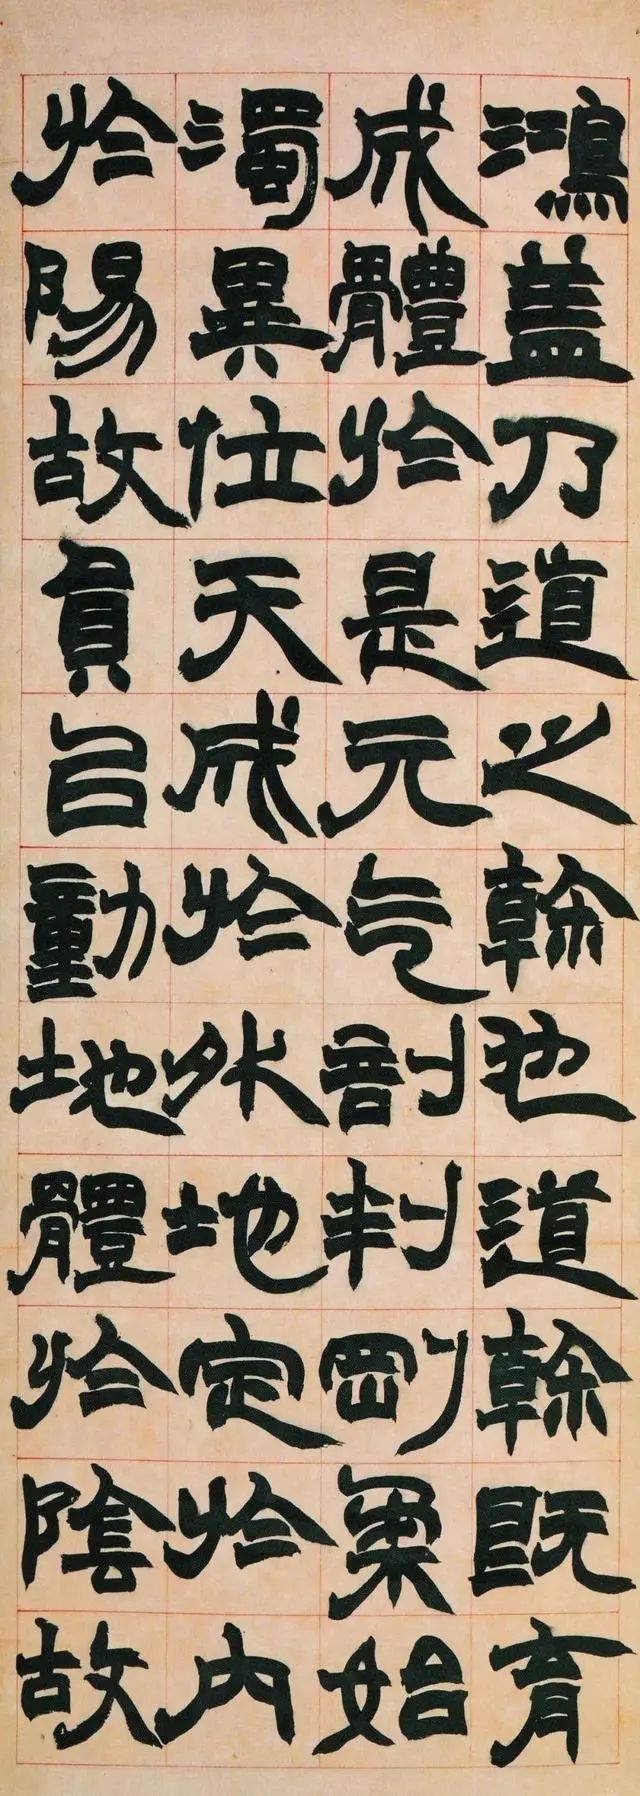 鴻盖乃道之榦也道榦既育
成體於是元气剖判剛柔始
濁異位天成於外地定於内
於陽故員㠯動地體於陰故